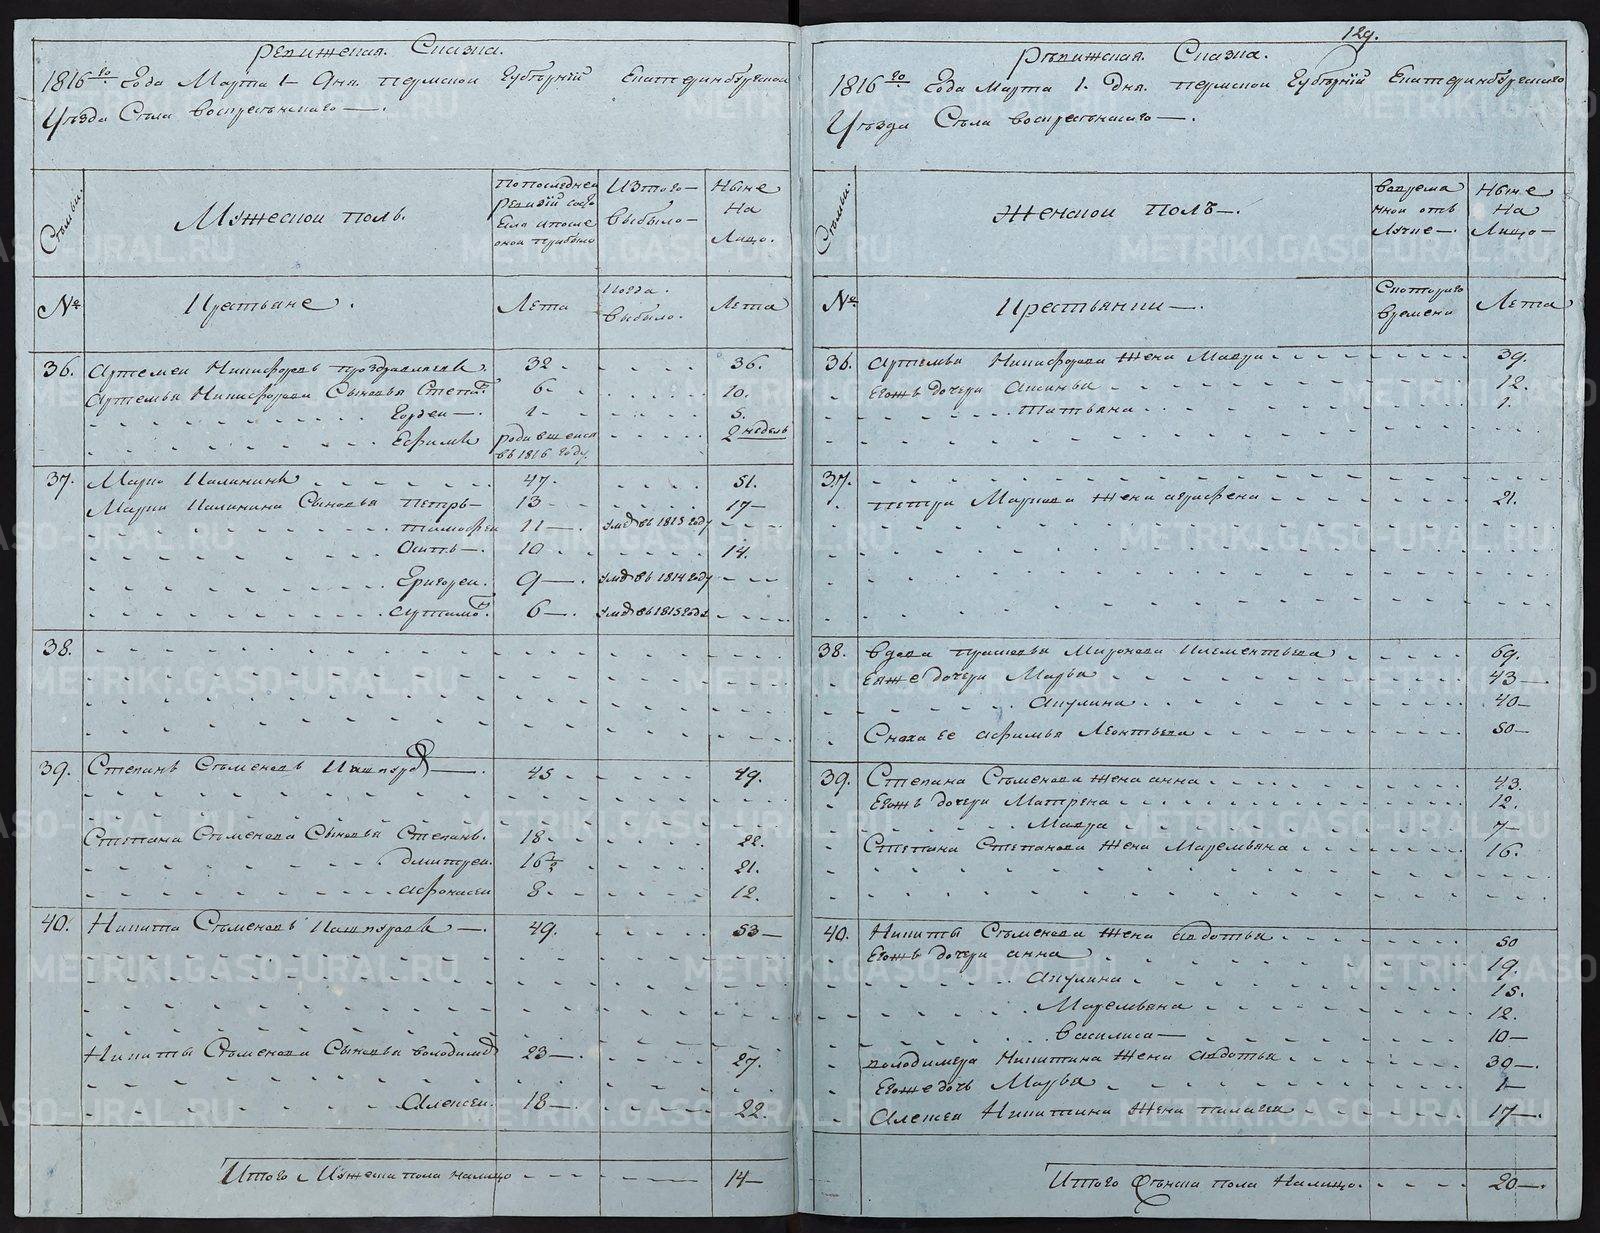 Ревижская Сказка.
1816го Года Марта 1 Дня. Пермской Губернiи Екатеринбургскаго
Уезда Села Воскресенскаго —.
Семьи.
Мужеской полъ.
По последней
Ревизiи состо
яло и после
оной прибыло
Из того —
выбыло —
Ныне
На
Лицо.
№
Крестьяне.
Лета
Когда
выбыло.
Лета
36. Артемей Никифоровъ 32 36.
Артемья Никифорова Сыновья Степа. 6 10.
Гордей —. 1 5.
Ефимъ родившейся въ 1816 году 2 недель
37. Марко Калининъ 47. 51.
Марки Калинина Сыновья Петръ — 13 17 —
Тимофей 11 — умд въ 1813 году
Осипъ —. 10 14.
Григорей. 9 —. умд въ 1814 году
Артамо. 6 —. умд въ 1815 году
38.
39. Степанъ Семеновъ 45 49.
Степана Семенова Сыновья Степанъ. 18. 22.
Дмитрей. 16 1/2 21.
Афонасей 8 12.
40. Никита Семеновъ Кашкуровъ —. 49. 53 —
Никиты Семенова Сыновья Володимер 23 —. 27.
Алексей. 18 —. 22.
Итого Мужеска пола налицо 14 —
129.
Ревижская Сказка.
1816го Года Марта 1. Дня. Пермской Губернiи Екатеринбургскаго
Уезда Села Воскресенскаго —.
Семьи.
Женской полъ —.
Во врема
нной отъ
лучке —.
Ныне
На
Лицо —
№
Крестьянки —.
С которого
времени
Лета
36. Артемья Никифорова Жена Мавра 39.
Егожъ дочери Аксинья 12.
Татьяна 1.
37.
Петра Маркова Жена Аграфена 21.
38. Вдова Прасковья Миронова Клементьева 69.
Еяже дочери Марья 43 —
Акулина 40 —
Сноха ее Афимья Леонтьева 50 —
39. Степана Семенова Жена Анна 43.
Егожъ дочери Матрена 12.
Мавра 7 —
Степана Степанова Жена Маремьяна 16.
40. Никиты Семенова Жена Авдотья 50
Егожъ дочери Анна 19.
Акулина 15.
Маремьяна 12.
Василиса — 10 —
Володимера Никитина Жена Авдотья 30 —.
Егоже дочь Марья 1
Алексея Никитина Жена Палагея 17 —.
Итого Женска пола Налицо. 20 —.
METRIKI.GASO-URAL.RU